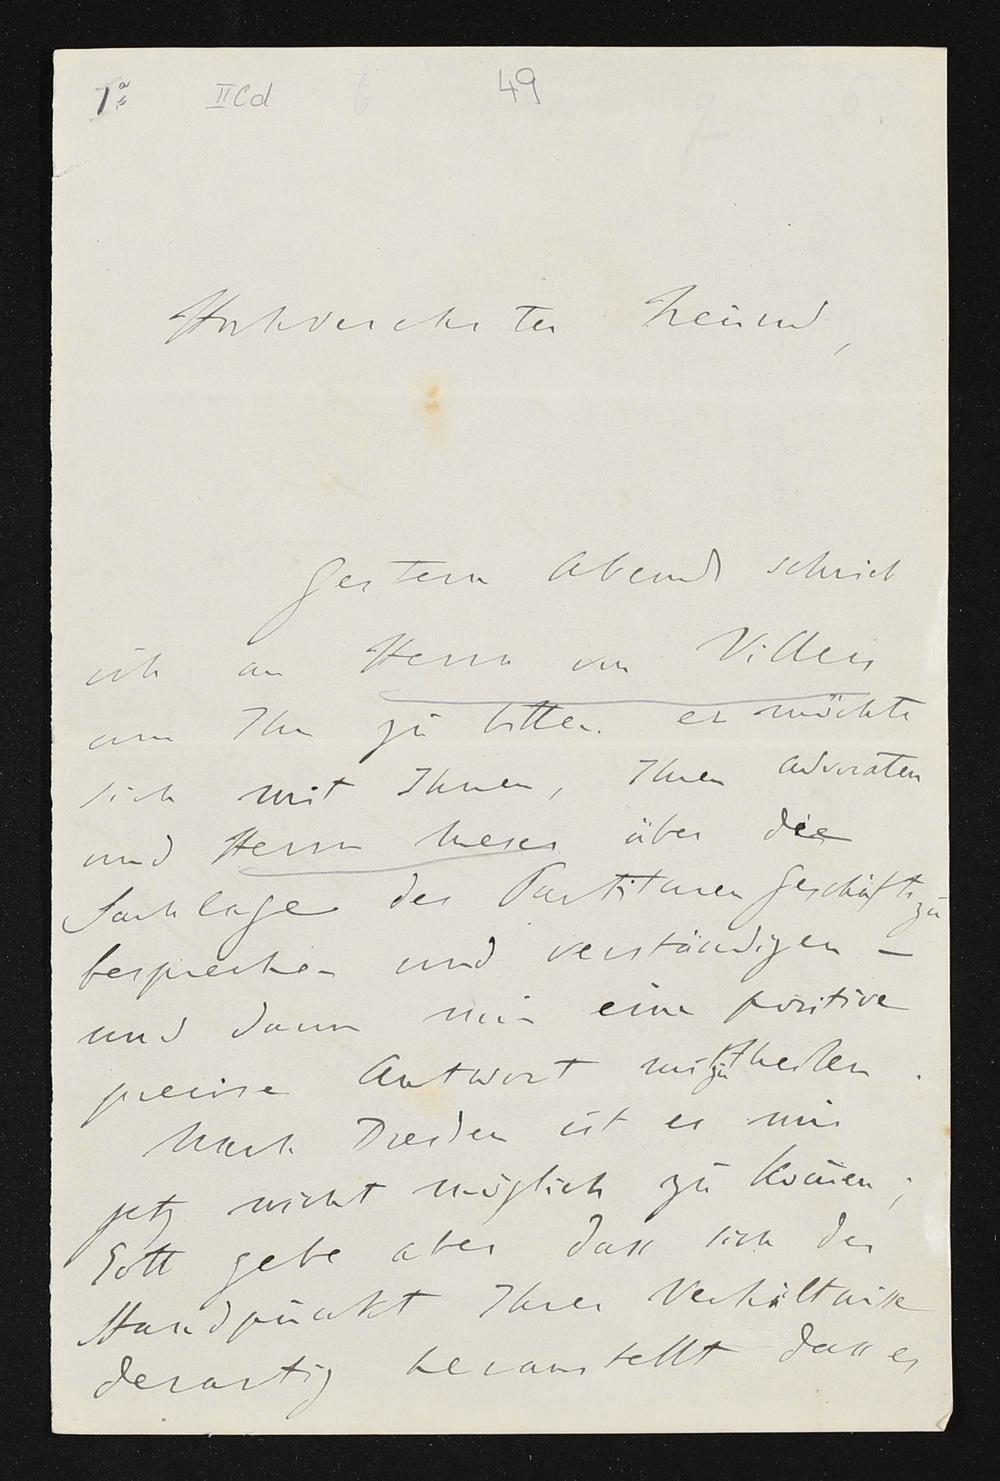 IICd 49
Hochverehrter Freund,
Gestern Abend schrieb
ich an Herrn von Villers
um Ihn zu bitten er möchte
sich mit Ihnen, Ihren Advocaten
und Herrn Meser über die
Sachlage des Partituren Geschäfts zu
besprechen und verständigen –
und dann mir eine positive
precise Antwort mitzutheilen.
Nach Dresden ist es mir
jetz nicht möglich zu kom̄en;
Gott gebe aber dass sich der
Standpunkt Ihrer Verhältnisse
derartig herausstellt dass es